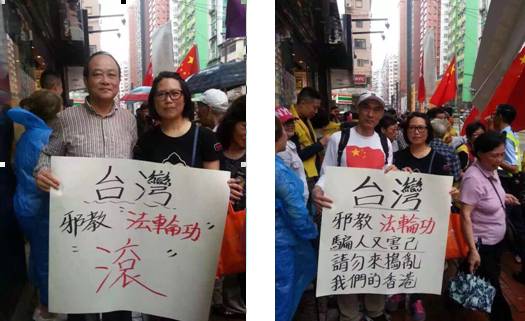 台灣
邪教"法輪功"
"滾"
台灣
邪教 法輪功
騙人又害己
請勿來搗亂
我們的香港